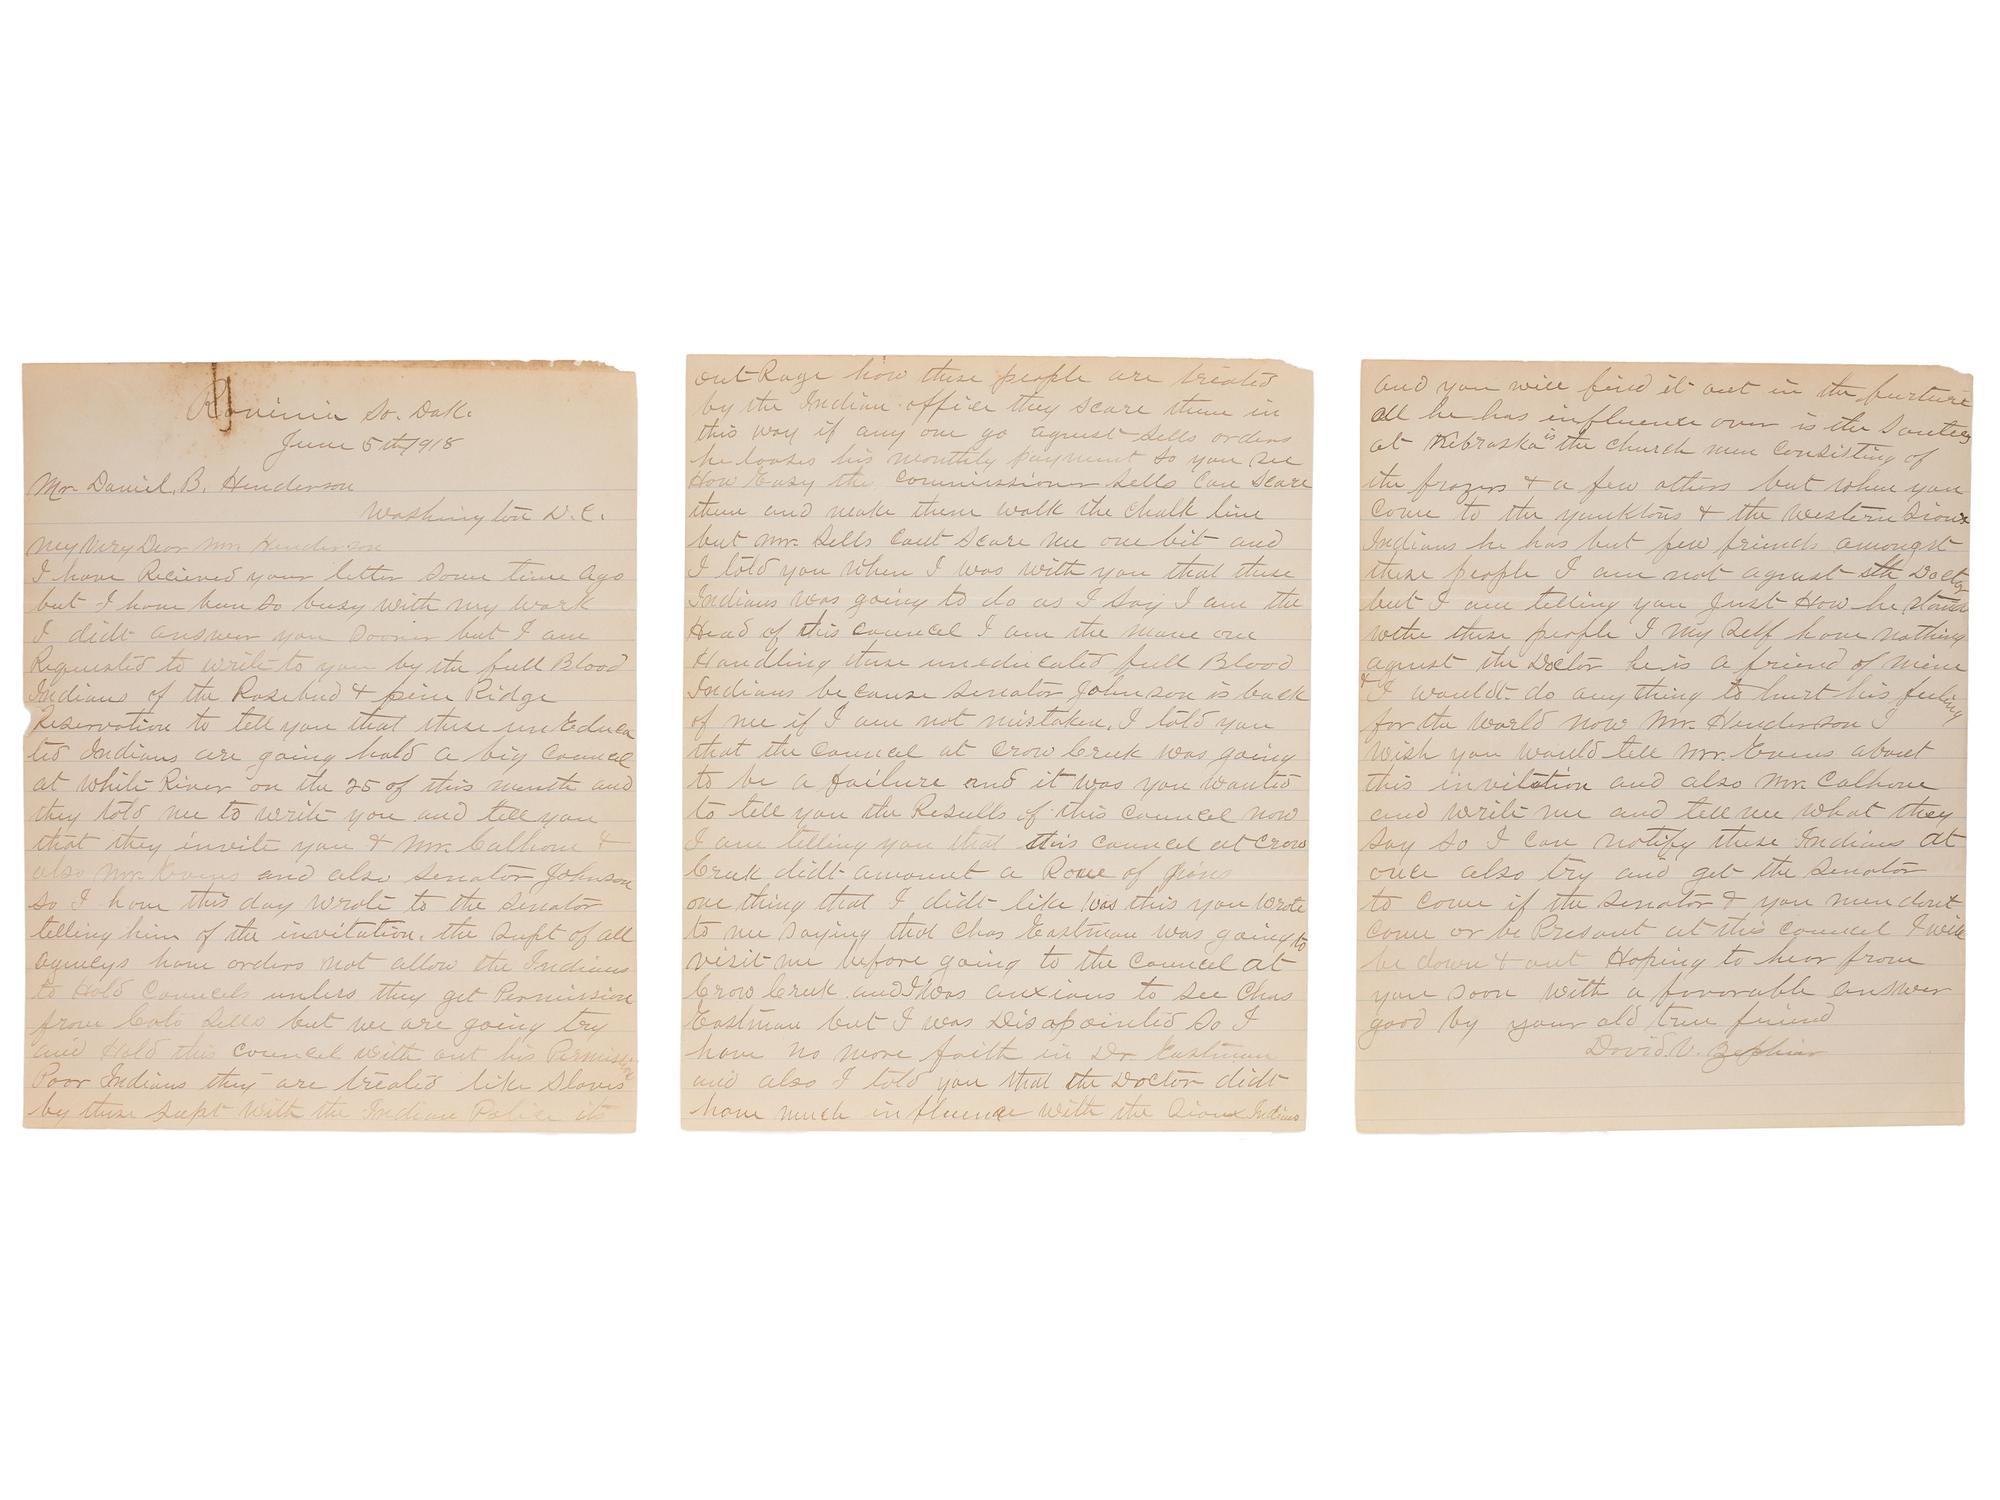 Ravinia So. Dak.
June 5th 1918
Mr. Daniel. B. Henderson
Washington D.C.
My Very Dear Mr. Henderson
I have Recieved your letter some time ago
but I have ben so busy with my work
I didt answer you sooner but I am
Requested to write to you by the full Blood
Indians of the Rosebud & pine Ridge
Reservation to tell you that these un Educa
ted Indians are going hold a big Council
at white River on the 25 of this month and
they told me to write you and tell you
that they invite you & Mr. Calhoun &
also Mr. Evens and also Senator Johnson
so I have this day wrote to the Senator
telling him of the invitation. the Supt of all
agencys have orders not allow the Indians
to Hold Councels unless they get Permission
from Cato Sells but we are going try
and Hold this council with out his Permission
Poor Indians they are treated like Slaves
by these Supt with the Indian Police its
out Rage how these people are treated
by the Indian office they scare them in
this way if any one go aganst Sells orders
he looses his monthly payment so you see
How Easy the Commissioner Sells can scare
them and make them walk the chalk line
but Mr. Sells cant scare me one bit and
I told you when I was with you that these
Indians was going to do as I say I am the
Head of this council I am the mane one
Handling these uneducated full Blood
Indians because senator Johnson is back
of me if I am not mistaken. I told you
that the council at Crow Creek was going
to be a failure and it was you wanted
to tell you the Results of this council now
I am telling you that this council at Crow
Creek didt amount a Rowe of pins
one thing that I didt like was this you wrote
to me saying that Chas Eastman was going to
visit me before going to the council at
Crow Creek and I was anxious to see Chas
Eastman but I was Disapointed so I
have no more faith in Dr Eastman
and also I told you that the Doctor didt
have much influence with the Sioux Indians
and you will find it out in the furture
all he has influence over is the Santees
at Nebraska is the church men consisting of
the frazers & a few others but when you
come to the yanktons & the western Sioux
Indians he has but few friends amongst
these people I am not aganst sth Doctor
but I am telling you Just How he stands
withe these people I my self have nothing
aganst the Doctor he is a friend of mine
& I wouldt do any thing to hurt his feeling
for the world now Mr. Henderson I
wish you would tell Mr. Evens about
this invitation and also Mr. Calhoun
and write me and tell me what they
say so I can notify these Indians at
once also try and get the Senator
to come if the Senator & you men dont
come or be Presant at this council I will
be down & out Hoping to hear from
you soon with a favorable answer
good by your old true friend
David. V. Zephier